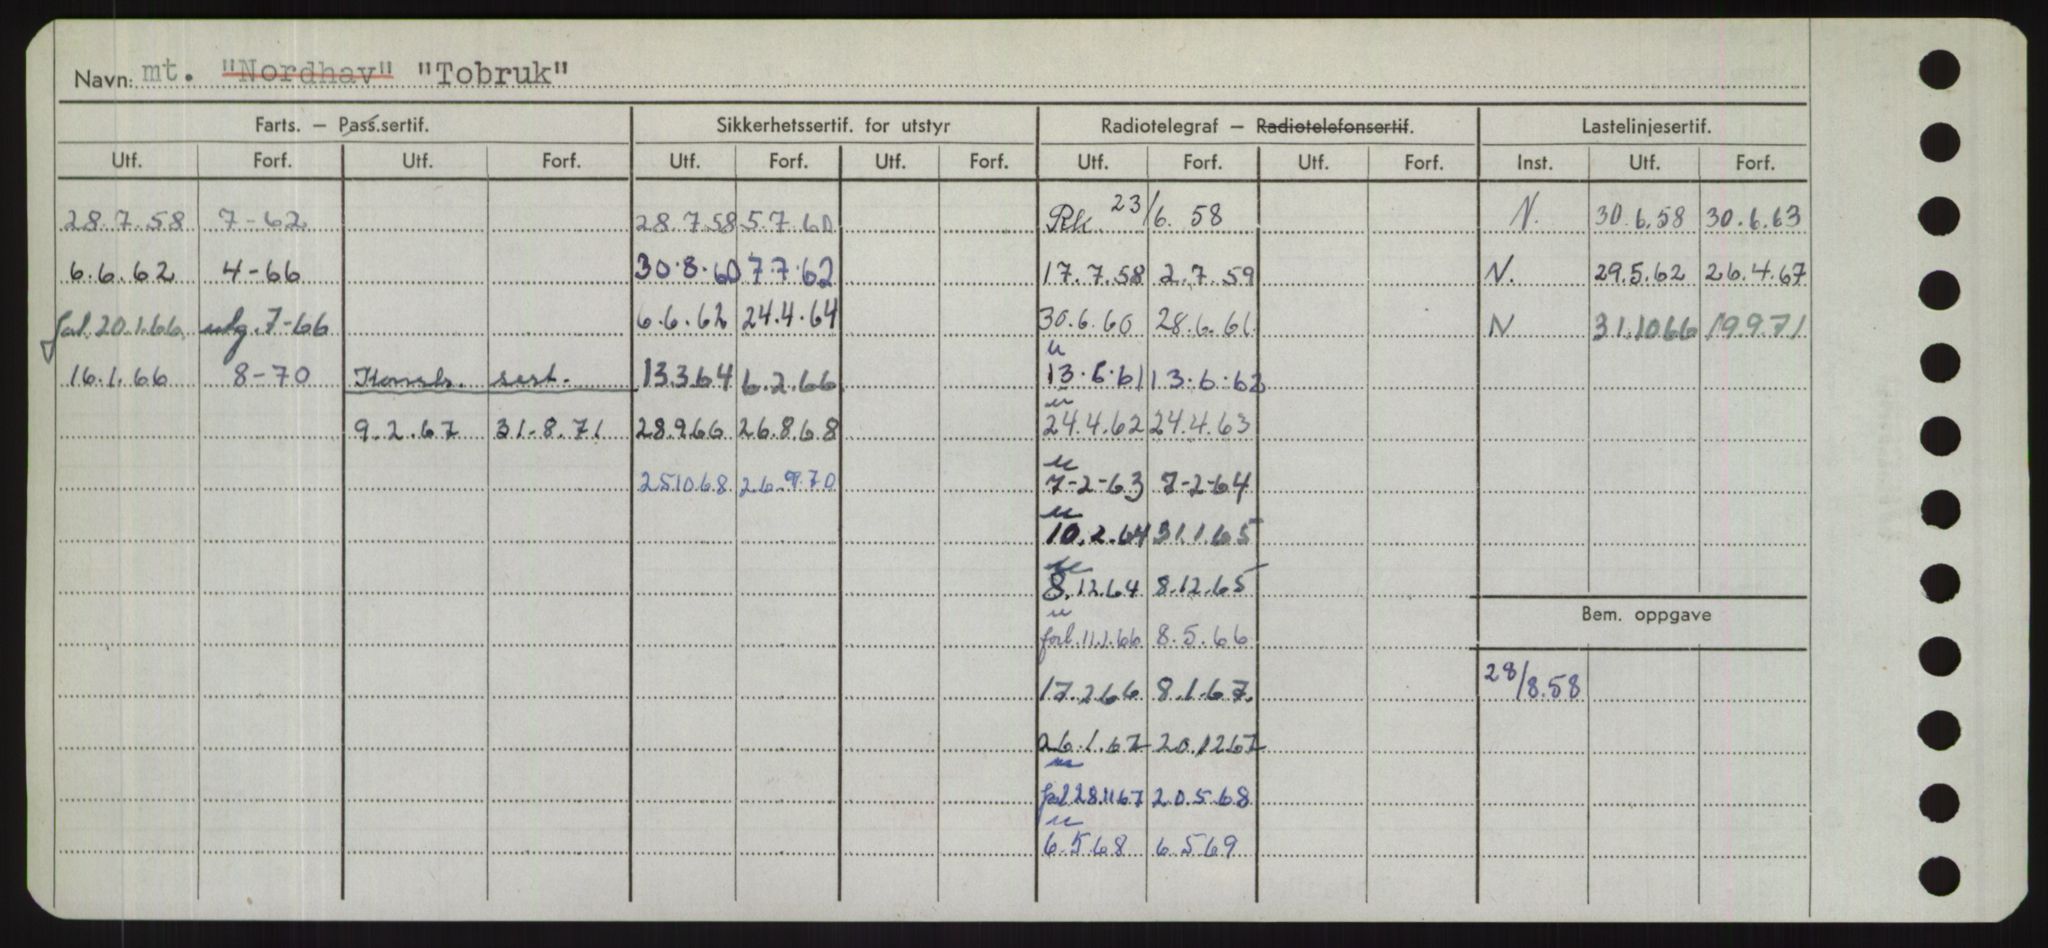 Navn: mt. "Nordhav" "Tobruk"
Farts. — Pass.sertif. Sikkerhetssertif. for utstyr Radiotelegraf — Radiotelefonsertif. Lastelinjesertif.
Utf. Forf. Utf. Forf. Utf. Forf. Utf. Forf. Utf. Forf. Utf. Forf. Inst. Utf. Forf.
28.7.58 7-62 28.7.58 5.7.60 23/6.58 N. 30.6.58 30.6.63
6.6.62 4-66 30.8.60 7.7.62 17.7.58 2.7.59 N. 29.5.62 26.4.67
20.1.66 utg. 7-66 6.6.62 24.4.64 30.6.60 28.6.61 N 31.1066 19.9.71
u
16.1.66 8-70 Konstr. sert. 13.3.64 6.2.66 13.6.61 13.6.62
u
9.2.67 31.8.71 28.9.66 26.8.68 24.4.62 24.4.63
u
251068 26.9.70 7-2-63 7-2-64
u
10.2.64 31.1.65
u
8.12.64 8.12.65
Bem. oppgave
u
forl. 11.1.66 8.5.66
17.2.66 8.1.67. 28/8.58
26.1.67 20.1267
u
28.11.67 20.5.68
u
6.5.68 6.5.69